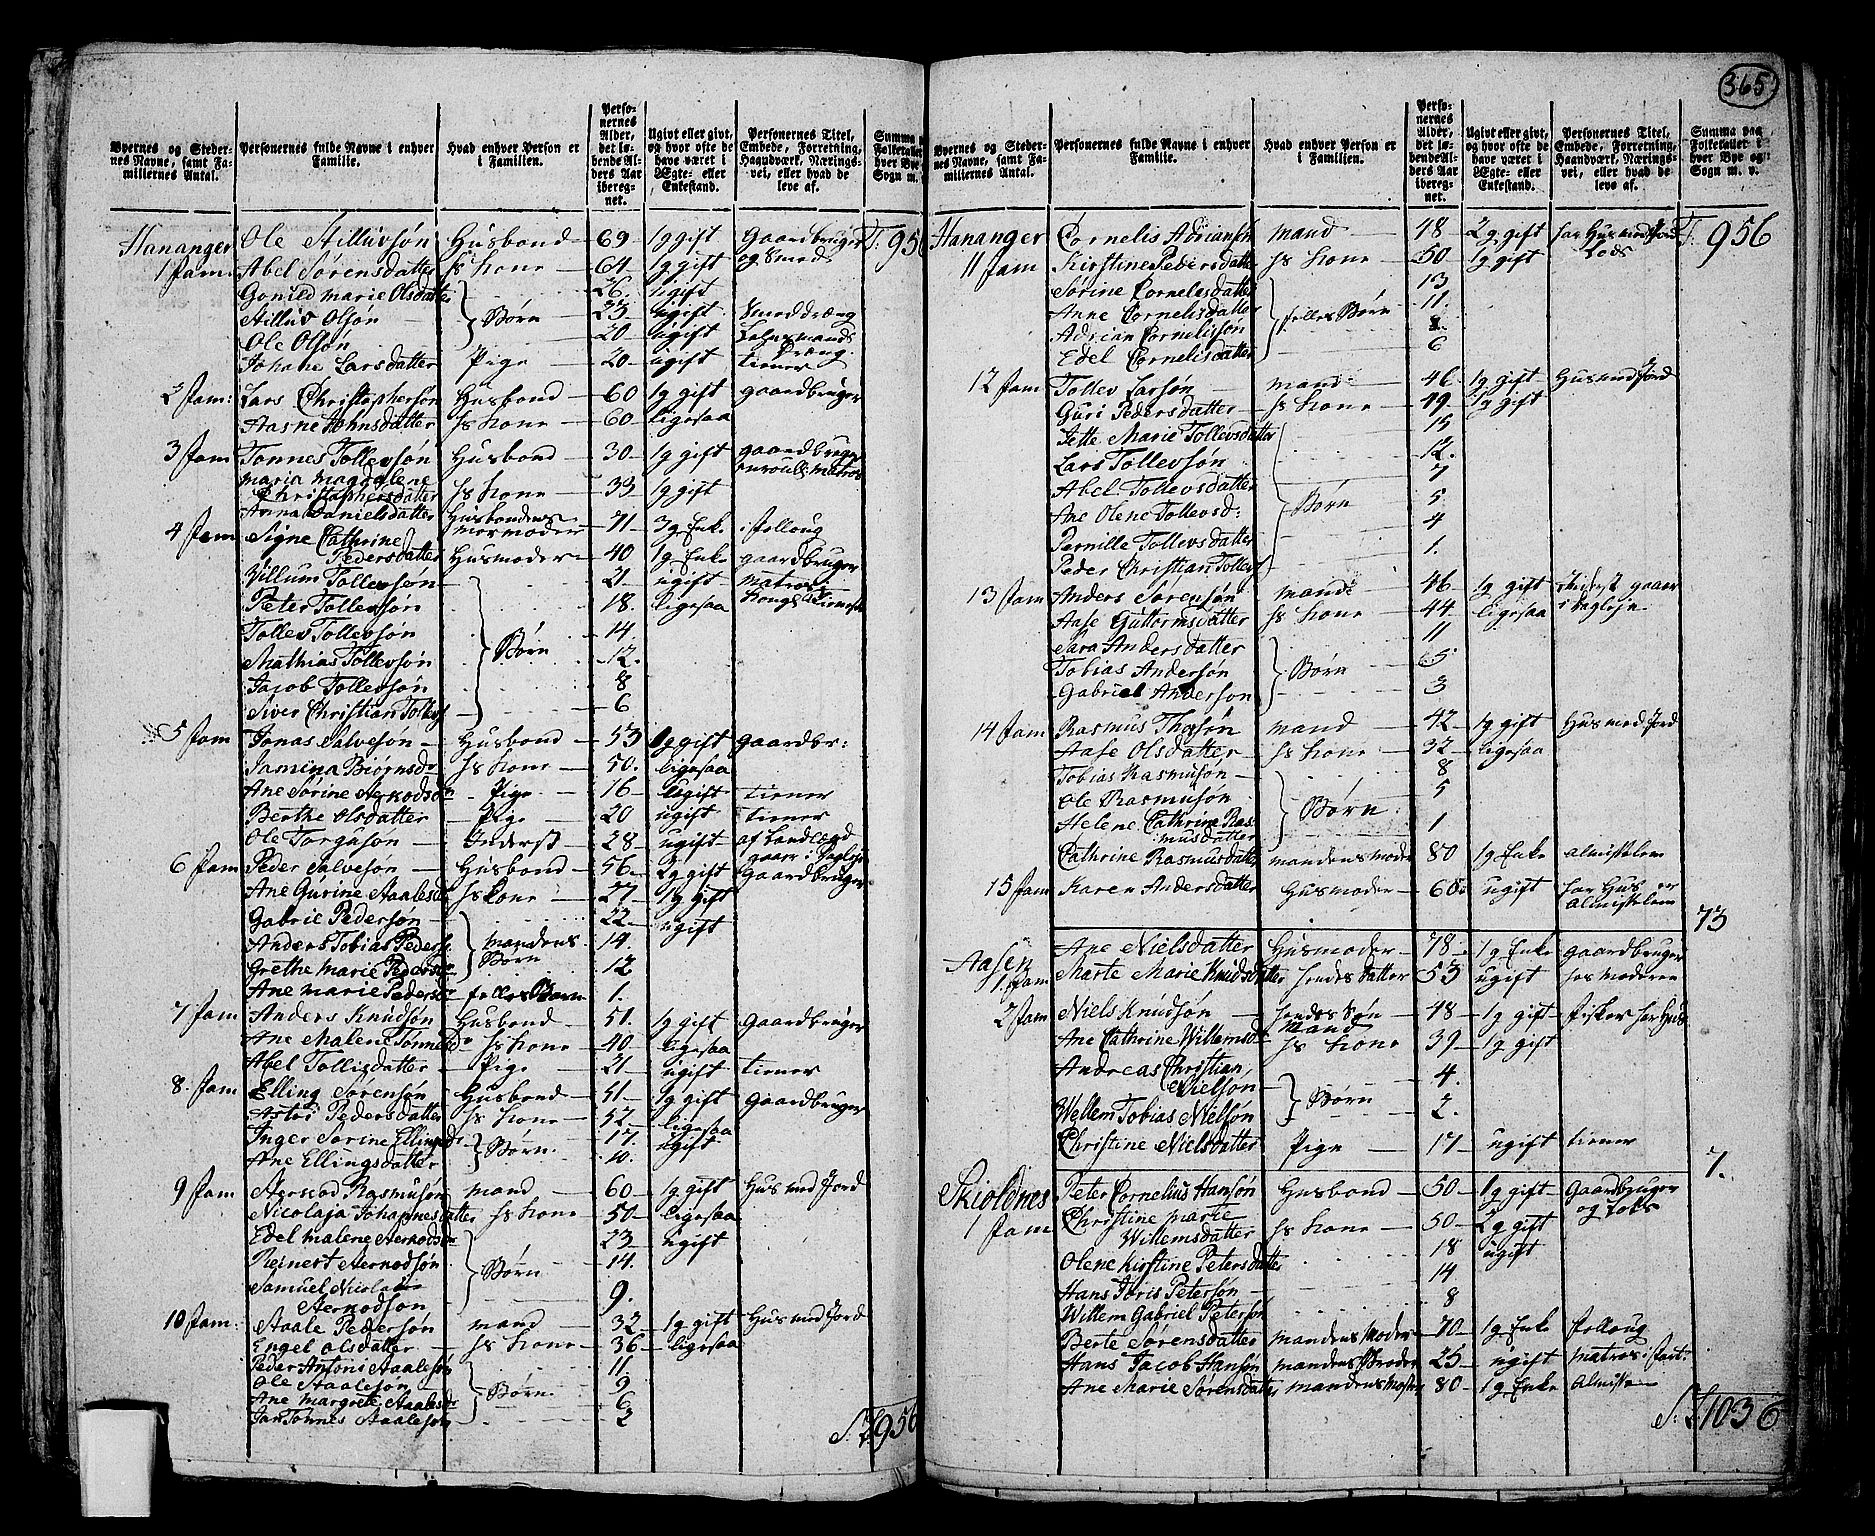 365
Byernes og Stedernes Navne, samt Familiernes Antal. | Personernes fulde Navne i enhver Familie. | Hvad enhver Person er i Familien. | Personernes Alder, det løbende Alders Aar iberegnet. | Ugivt eller givt, og hvor ofte de have været i Ægte- eller Enkestand. | Personernes Titel, Embede, Forretning, Haandværk, Næringsvei, eller hvad de leve af. | Summa
Hananger 1 fam: | Ole Stilluvsøn | Husbond | 69 | 1g gift | Gaardbruger og Smed | T: 956
Abel Sørensdatter | hs kone | 64 | 1g gift
Gonild marie Olsdatter | Børn | 26 | ugift
Stilluv Olsøn | 23 | ugift | Smeddræng
Ole Olsøn | 20 | ugift
Johane Larsdatter | Pige | 20 | ugift | tiener
2 fam: | Lars Christophersøn | Husbond | 60 | 1g gift | gaardbruger
Aasne Johnsdatter | hs kone | 60 | ligesaa
3 fam | Tønnes Tollevsøn | Husbond | 30 | 1g gift | gaardbruger enroull: matros
Maria Magdalene Christophersdatter | hs kone | 33 | 1g gift
Anna Danielsdatter | Husbondens mormoder | 71 | 3g Enke
4 fam | Signe Cathrine Pedersdatter | Husmoder | 40 | 1g Enke | gaardbruger
Villum Tollevsøn | Børn | 21 | ugift | matros i Kongs Tieneste
Peter Tollevsøn | 18 | ligesaa
Tollev Tollevsøn | 14
Mathias Tollevsøn | 12
Jacob Tollevsøn | 8
Siver Christian Tollevs | 6
5 fam | Jonas Salvesøn | Husbond | 53 | 1g gift | gaardbr:
Jamina Biørnsdr | hs kone | 50 | ligesaa
Ane Sørine | Pige | 16 | ugift | tiener
Berthe Olsdatter | Pige | 20 | ugift | tiener
Ole Torgusøn | Inderst | 28 | ugift
6 fam | Peder Salvesøn | Husbond | 56 | 2g gift | Gaardbruger
Ane Gurine | hs kone | 27 | 1g gift
Gabriel Pedersøn | mandens Børn | 22 | ugift
Anders Tobias Peders | 14
Grethe Marie | 12
Ane Marie | felles Barn | 1
7 fam | Anders Knudsøn | Husbond | 51 | 1g gift | Gaardbruger
Ane Malene | hs kone | 40 | ligesaa
Abel Tollisdatter | Pige | 21 | ugift | tiener
8 fam | Elling Sørensøn | Husbond | 51 | 1g gift | Gaardbruger
Astri Pedersdatter | hs kone | 52 | ligesaa
Inger Sørine | Børn | 17 | ugift
Ane Ellingsdatter | 10
9 fam | Rasmusøn | mand | 60 | 1g gift | Hus med Jord
Nicolaja Johannesdatter | hs kone | 50 | ligesaa
Edel Malene | Børn | 23 | ugift
Reinert Aerkodsøn | 14
Samuel Nicolai Aerkodsøn | 9
10 fam: | Aaale Pedersøn | mand | 32 | 1g gift | Hus med Jord
Engel Olsdatter | hs kone | 36 | ligesaa
Peder Antoni Aaalesøn | Børn | 11
Ole Aaalesøn | 9
Ane Margrete | 6
Jan Tønnes Aaalesøn | 2
956
Byernes og Stedernes Navne, samt Familiernes Antal. | Personernes fulde Navne i enhver Familie. | Hvad enhver Person er i Familien. | Personernes Alder, det løbende Alders Aar iberegnet. | Ugivt eller givt, og hvor ofte de have været i Ægte- eller Enkestand. | Personernes Titel, Embede, Forretning, Haandværk, Næringsvei, eller hvad de leve af. | Summa paa Folketallet i hver Bye og Sogn m. v.
Hananger 11 fam | Cornelis Adriansøn | mand | 48 | 2g gift | har Hus med Jord Lods | T: 956
Kirstine Pedersdatter | hs kone | 50 | 1g gift
Sørine Cornelisdatter | felles Børn | 13
Anne Cornelisdatter | 11
Adrian Cornelisøn
Edel Cornelisdatter | 6
12 fam | Tollev Larsøn | mand | 46 | 1g gift | Hus med Jord
Guri Pedersdatter | hs kone | 49 | 1g gift
Jette Marie Tollevsdatter | Børn | 15
Lars Tollevsøn | 12
Abel Tollevsdatter | 7
Ane Olene Tollevsd: | 5
Pernille Tollevsdatter | 4
Peder Christian Tollevs | 1
13 fam | Anders Sørensøn | mand | 46 | 1g gift | Inderst gaaer i Dagleje
Aase Guttormsdatter | hs kone | 44 | ligesaa
Sara Andersdatter | Børn | 11
Tobias Andersøn | 5
Gabriel Andersøn | 3
14 fam | Rasmus | mand | 42 | 1g gift | Hus med Jord
Aase Olsdatter | hs kone | 32 | ligesaa
Tobias Rasmusøn | Børn | 8
Ole Rasmusøn | 5
Helene Cathrine Rasmusdatter | 1
Cathrine Rasmusdatter | mandens moder | 80 | 1g Enke | almistelem
15 fam | Karen Andersdatter | Husmoder | 60 | ugift | har Hus er Almistelem
73
Aasen 1 fam | Ane Nielsdatter | Husmoder | 78 | 1g Enke | gaardbruger
Marte Marie Knudsdatter | hendes datter | 53 | ugift | hos moderen
2 fam | Niels Knudsøn | hendes Søn mand | 48 | 1g gift | fisker har Hus
Ane Cathrine Willemsd | hs kone | 39 | 1g gift
Andreas Christian Nielsøn | Børn | 4
Wellem Tobias Nielsøn | 2
Christine Nielsdatter | Pige | 17 | ugift | tiener
7.
Skioldnes 1 fam | Peter Cornelius Hansøn | Husbond | 50 | 1g gift | Gaardbruger og Lods
Christine Marie Willemsdatter | hs kone | 50 | 2g gift
Olene Kirstine Petersdatter | 18 | ugift
Hans Joris Petersøn | 14
Willem Gabriel Petersøn | 8
Berte Sørensdatter | mandens Moder | 70 | 1g Enke
Hans Jacob Hansøn | mandens Broder | 25 | ugift | matros i fart:
Ane Marie Sørensdatter | mandens Moster | 80 | 1g Enke | Almisse
1036